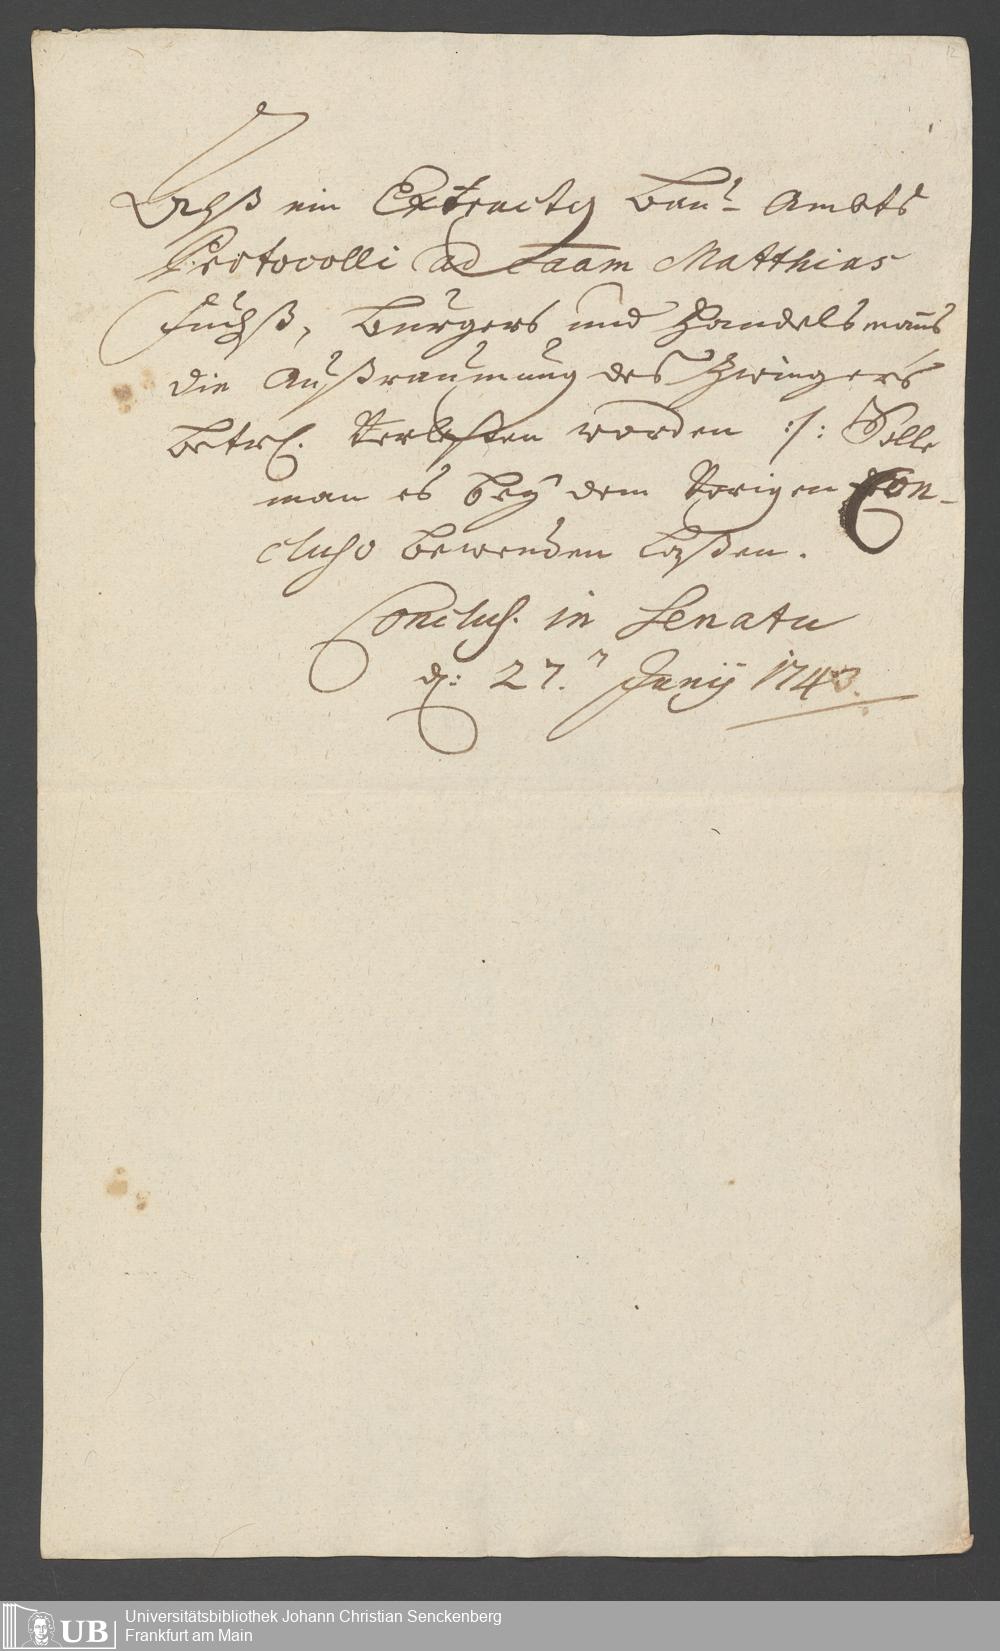 12
Alß ein Extractus Bau- Ambts
Protocolli ad Caam Matthias
Fuchß, Burgers und Handelsmanns
die Außraumung des Zwingers
betrf. verlesen worden :/: Solle
man es bey dem Vorigen Con-
cluso bewenden laßen.
Conclus. in Senatu
d: 27. Junij 1743.
Universitätsbibliothek Johann Christian Senckenberg
Frankfurt am Main
UB